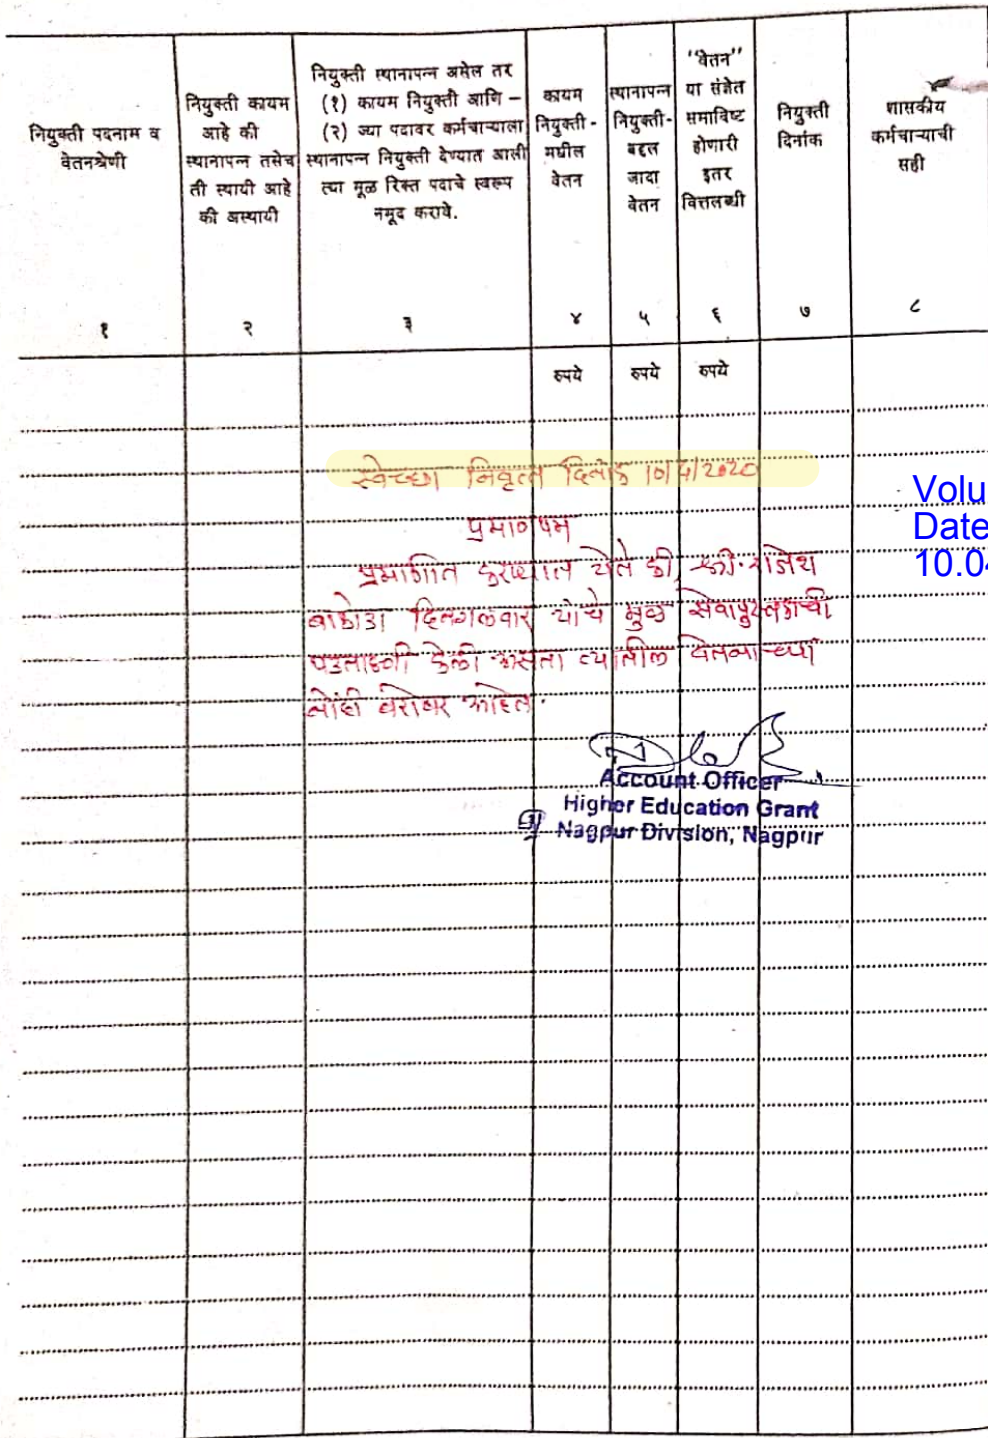 नियुक्ती पदनाम व
वेतनश्रेणी
नियुक्ती कायम
आहे की
स्थानापन्न तसेच
ती स्थायी आहे
की अस्थायी
नियुक्ती स्थानापन्न असेल तर
(१) कायम नियुक्ती आणि –
(२) ज्या पदावर कर्मचाऱ्याला
स्थानापन्न नियुक्ती देण्यात आली
त्या मूळ रिक्त पदाचे स्वरूप
नमूद करावे.
कायम
नियुक्ती-
मधील
वेतन
स्थानापन्न
नियुक्ती-
बद्दल
जादा
वेतन
"वेतन"
या संज्ञेत
समाविष्ट
होणारी
इतर
वित्तलब्धी
नियुक्ती
दिनांक
शासकीय
कर्मचाऱ्याची
सही
१ २ ३ ४ ५ ६ ७ ८
रुपये रुपये रुपये
स्वेच्छा निवृत्त दिनांक 10/4/2020
Volu
Date
10.04
प्रमाणपत्र
प्रमाणित करण्यात येते की, श्री. राजेश
यांचे मुळ सेवापुस्तकाची
पडताळणी केली असता त्यातील वेतनाच्या
नोंदी बरोबर आहेत.
Account Officer
Higher Education Grant
Nagpur Division, Nagpur